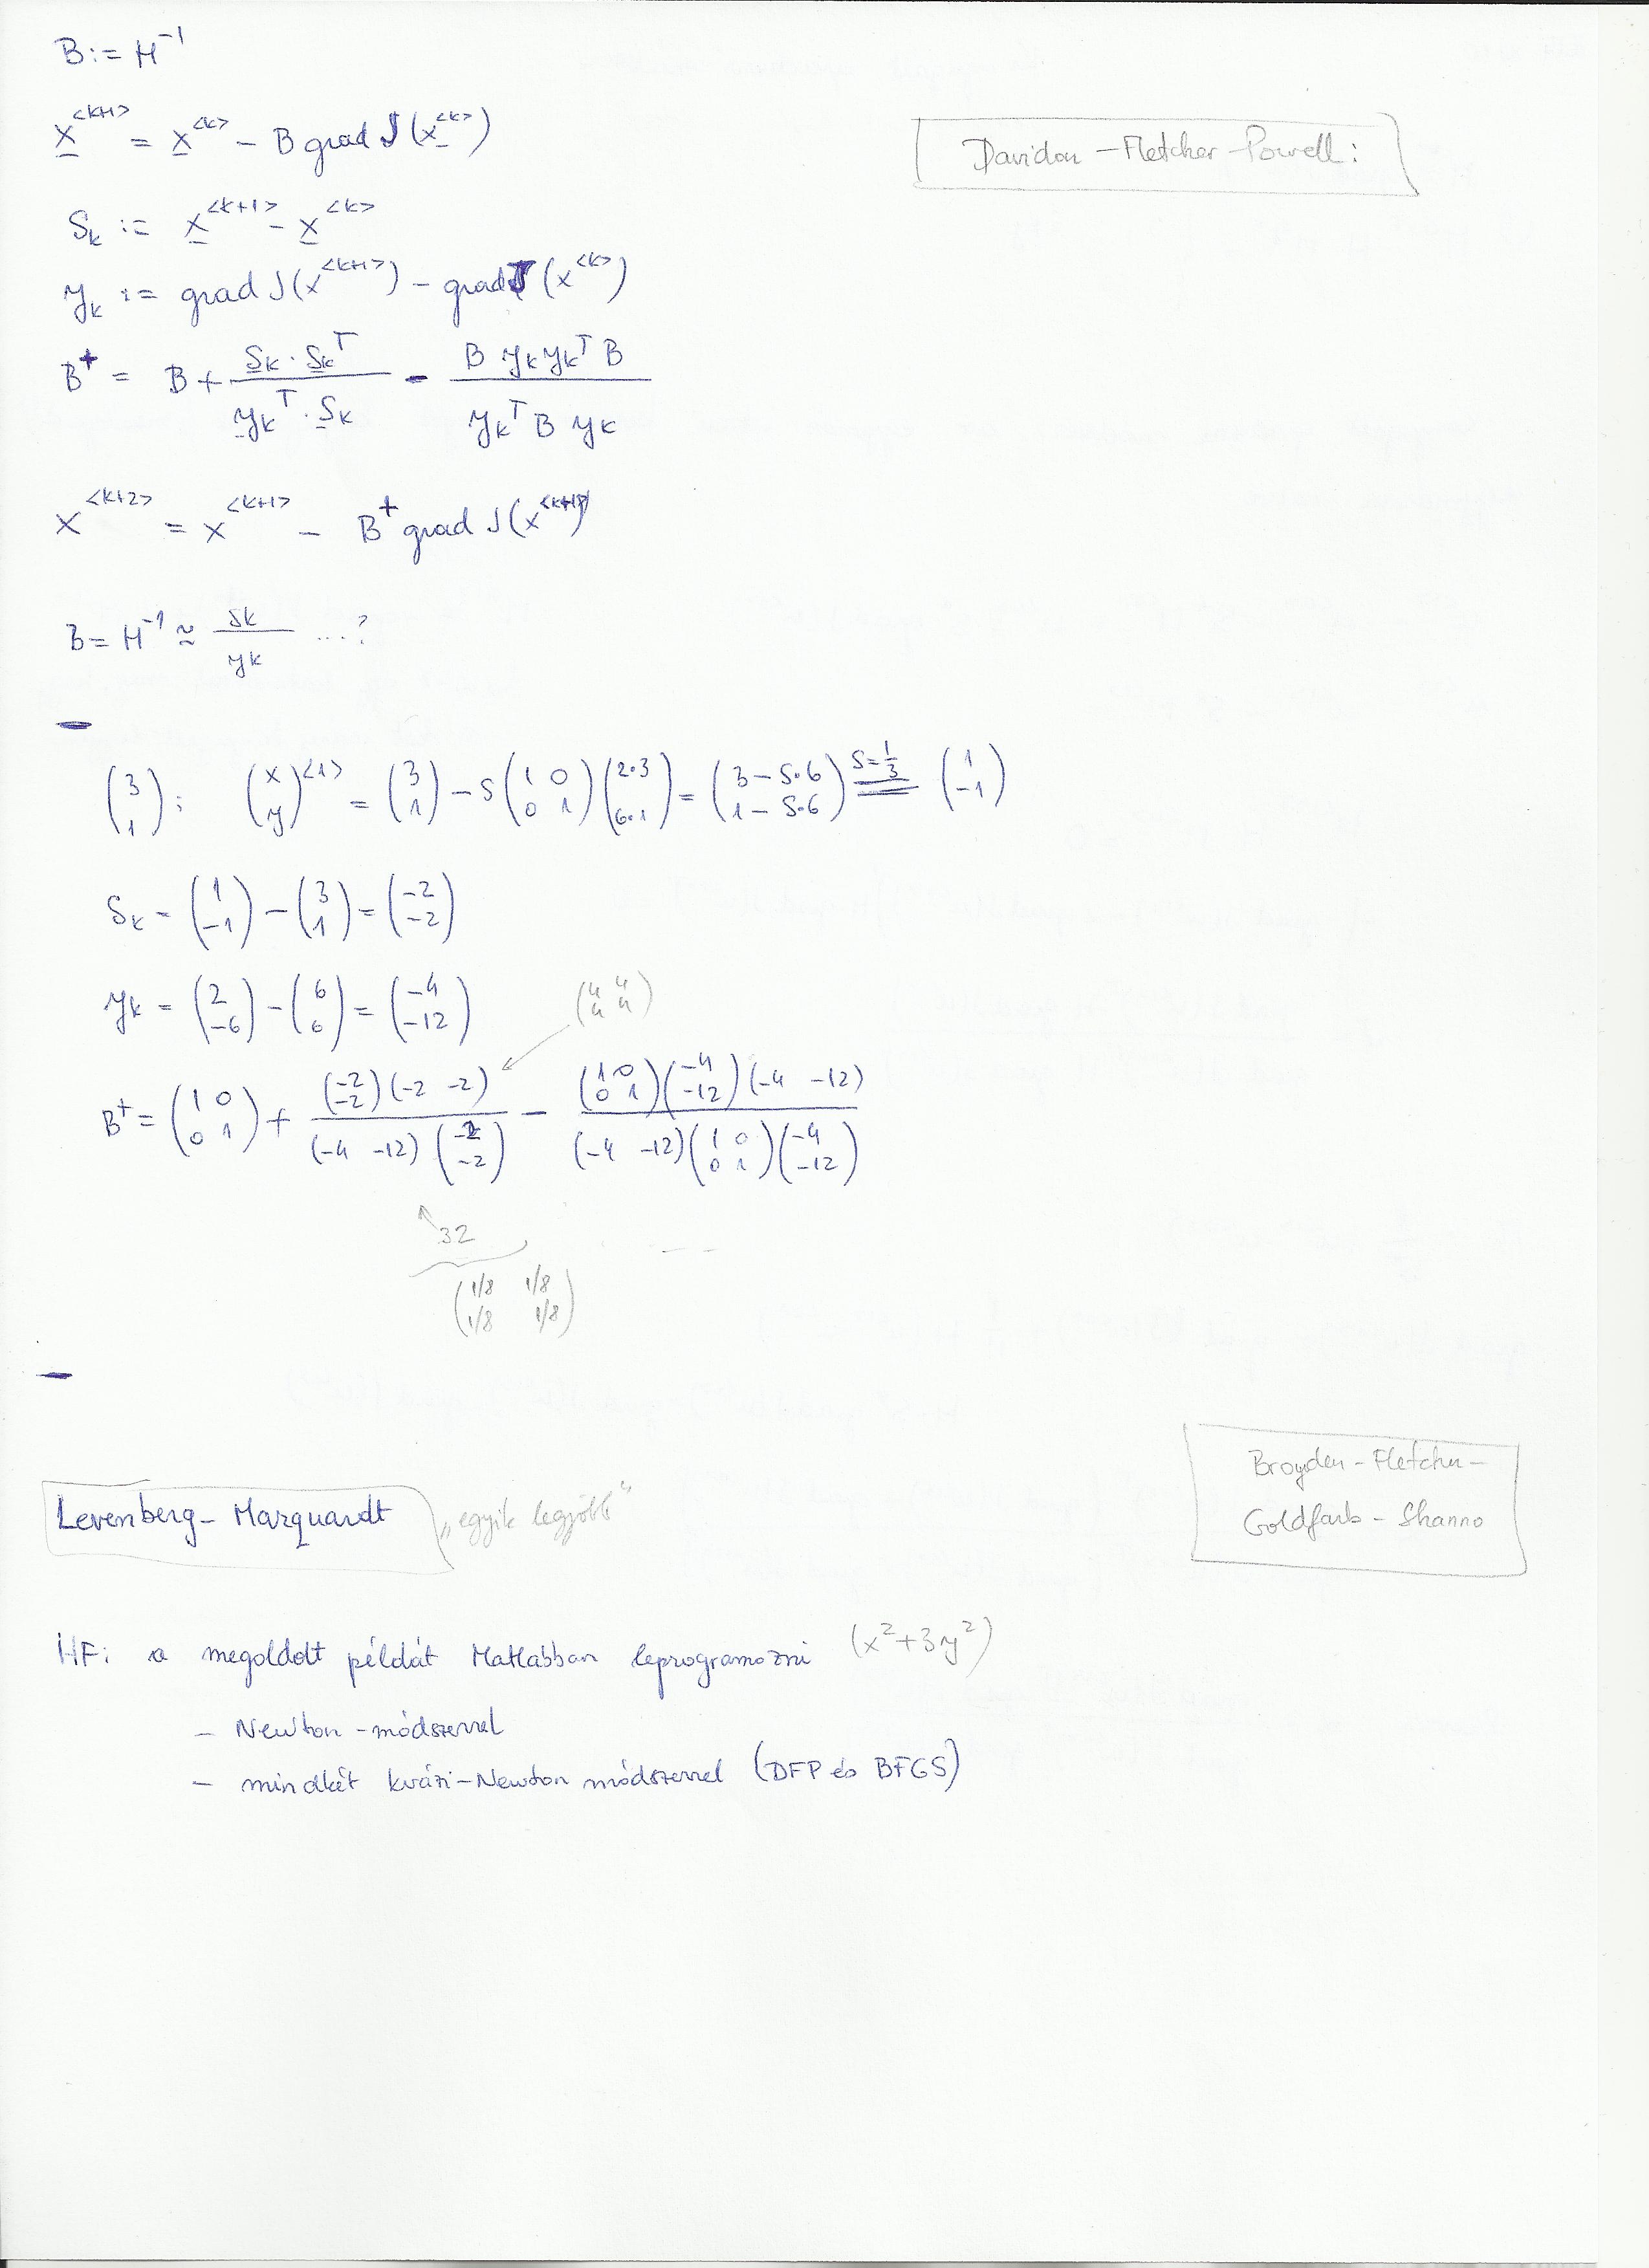 B := H⁻¹
x^<k+1> = x^<k> − B grad J(x^<k>)
Davidon – Fletcher – Powell:
S_k := x^<k+1> − x^<k>
y_k := grad J(x^<k+1>) − grad J(x^<k>)
B⁺ = B + (S_k · S_k^T)/(y_k^T · S_k) − (B y_k y_k^T B)/(y_k^T B y_k)
x^<k+2> = x^<k+1> − B⁺ grad J(x^<k+1>)
B = H⁻¹ ≈ s_k / y_k ...?
(3; 1): (x; y)^<1> = (3; 1) − S (1 0; 0 1) (2·3; 6·1) = (3 − S·6; 1 − S·6) S=1/3 = (1; −1)
S_k = (1; −1) − (3; 1) = (−2; −2)
y_k = (2; −6) − (6; 6) = (−4; −12)
(4 4; 4 4)
B⁺ = (1 0; 0 1) + ((−2; −2)(−2 −2))/((−4 −12)(−2; −2)) − ((1 0; 0 1)(−4; −12)(−4 −12))/((−4 −12)(1 0; 0 1)(−4; −12))
32
(1/8 1/8; 1/8 1/8)
Broyden – Fletcher –
Goldfarb – Shanno
Levenberg – Marquardt „egyik legjobb"
HF: a megoldott példát Matlabban leprogramozni (x²+3y²)
– Newton-módszerrel
– mindkét kvázi-Newton módszerrel (DFP és BFGS)